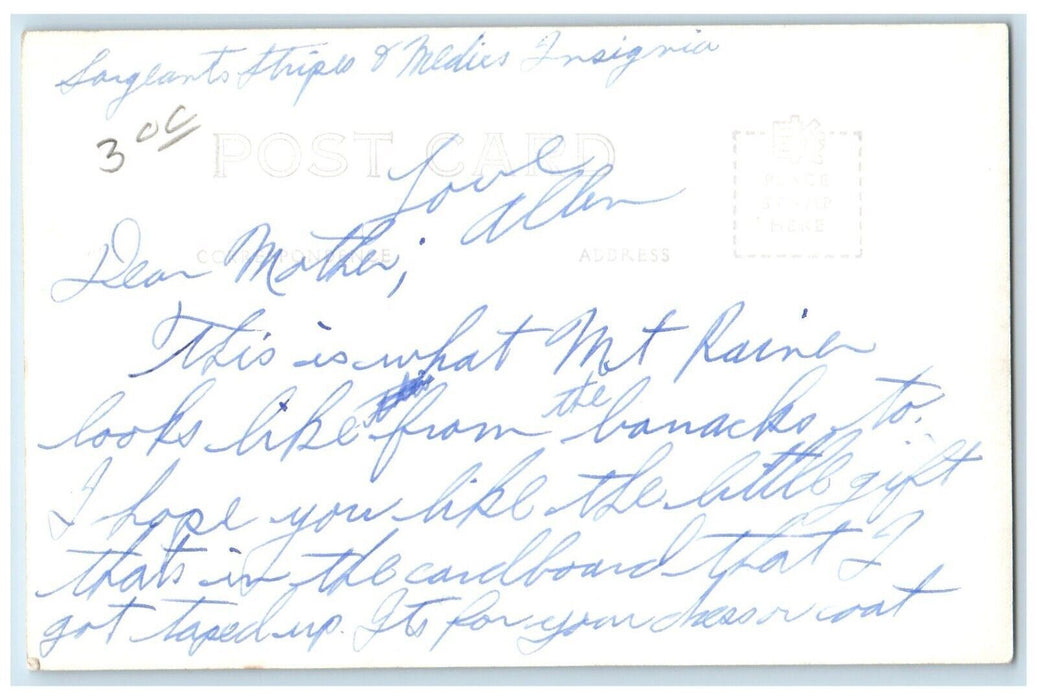 Sargeants Stripes & Medics Insignia
30c
POST CARD
PLACE
STAMP
HERE
Love
Allen
CORRESPONDENCE
ADDRESS
Dear Mother;
This is what Mt Rainer
looks like from the barracks to.
I hope you like the little gift
thats in the cardboard that I
got taped up. Its for your dress or coat